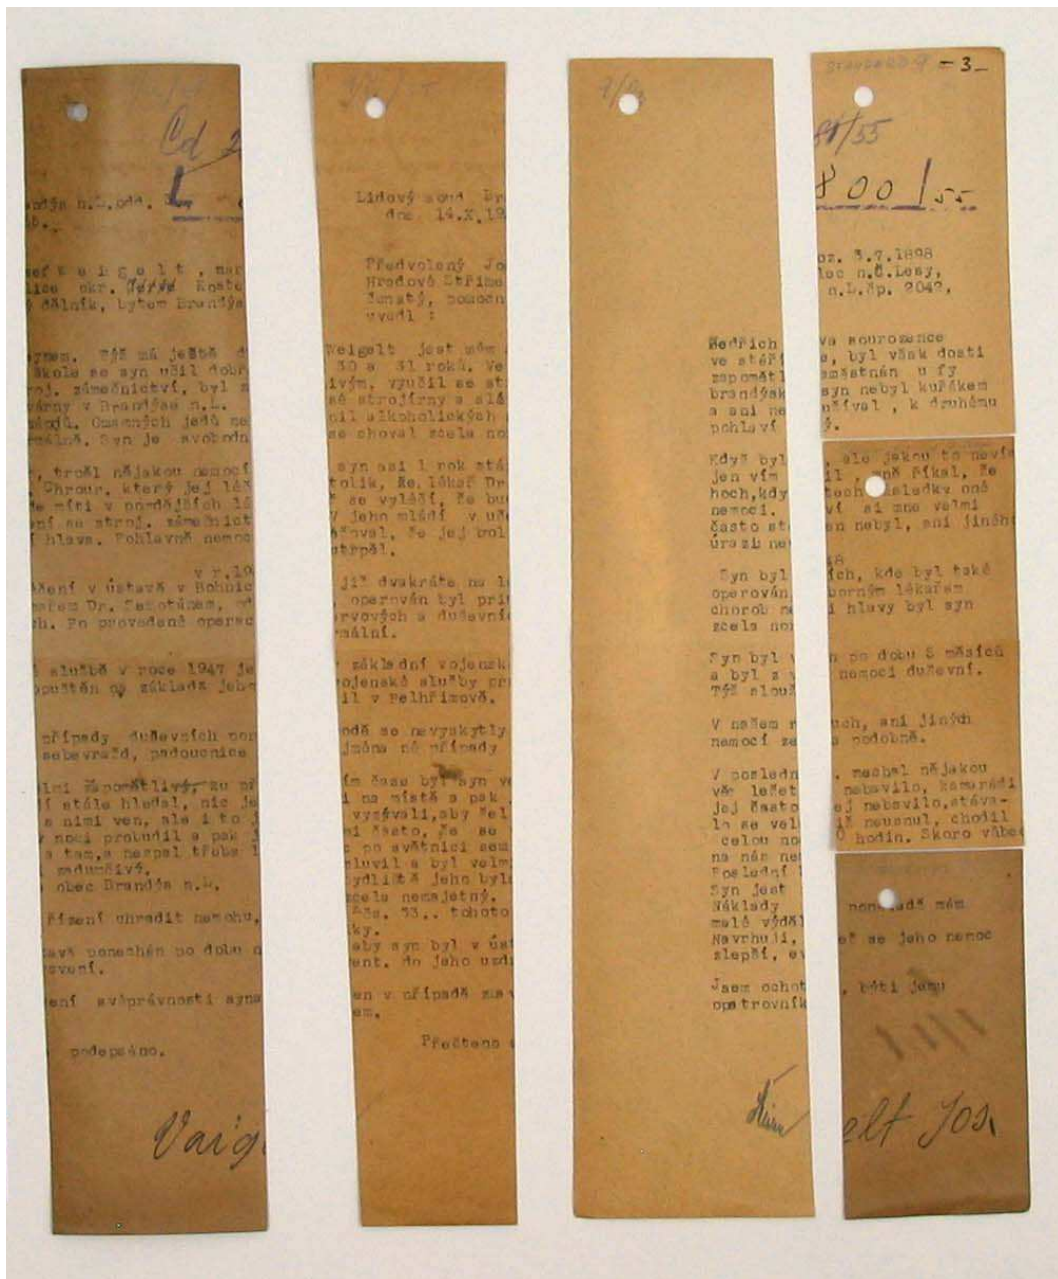 Cd 2
L
ndýs n.L.odd.
sef W e i g e l t , nar
lice okr. Koste
ý dělník, bytem Brandýs
synem. Týž má ještě d
škole se syn učil dobř
roj. zámečnictví, byl z
várny v Brandýse n.L.
nápojů. Omamných jedů ne
rmálně. Syn je svobodn
r, trpěl nějakou nemocí
Chrour, který jej léč
de míti v pozdějších lé
ení se stroj. zámečnict
í hlava. Pohlavně nemoc
v r.19
čení v ústavě v Bohnic
ch. Po provedené operac
é službě v roce 1947 je
opuštěn na základě jeho
případy duševních por
sebevražd, padoucnice
lmi zapomětlivý, ku př
í stále hledal, nic je
s nimi ven, ale i to j
v noci probudil a pak j
a tam,a nespal třeba 1
zadumčivý.
obec Brandýs n.L.
řízení uhradit nemohu,
tavě ponechán po dobu n
avení.
ení svéprávnosti syna
podepsáno.
Vaig
Lidový soud Br
dne 14.X.19
Předvolaný Jo
Hradové Střime
ženatý, pomocn
uvedl :
Weigelt jest mým
30 a 31 roků. Ve
ivým, vyučil se st
sé strojírny a slé
nil alkoholických
se choval zcela no
syn asi 1 rok stá
tolik, že lékař Dr
se vyléčí, že bu
V jeho mládí v uče
ěžoval, že jej bol
utrpěl.
již dvakráte na l
operován byl pri
ervových a duševníc
mální.
v základní vojensk
vojenské služby pr
il v Pelhřimově.
odě se nevyskytly
jména né případy
ím čase byl syn ve
i na místě a pak
vyzývali,aby šel
mi často, že se
c po světnici sem
luvil a byl velmi
ydliště jeho byla
zcela nemajetný.
tohoto
ky.
aby syn byl v úst
ent. do jeho uzdr
en v případě zba v
em.
Přečteno
Bedřich
ve stáří
zapomětl
brandýsk
a ani ne
pohlaví
Když byl
jen vím
hoch,kdy
nemoci.
často st
úrazu ne
Syn byl
operován,
chorob ne
zcela nor
Syn byl v
a byl z v
Týž slouž
V našem r
nemocí ze
V posledn
věc ležet
jej často
lo se vel
celou no
na nás ne
Poslední
Syn jest
Náklady
malé výděl
Navrhuji,
zlepší, ev
Jsem ochot
opatrovník
- 3 -
81/55
800/55
oz. 3.7.1898
lec n.Č.Lesy,
n.L.čp. 2042,
va sourozence
e, byl však dosti
aměstnán u fy
syn nebyl kuřákem
užíval , k druhému
ý.
, ale jakou to nevím
il , mně říkal, že
tech následky oné
ví si mne velmi
en nebyl, ani jiného
48
ích, kde byl také
borným lékařem
i hlavy byl syn
n po dobu 8 měsíců
nemoci duševní.
uch, ani jiných
a podobně.
, nechal nějakou
nebavilo, kamarádi
ej nebavilo,stáva-
iž neusnul, chodil
0 hodin. Skoro vůbec
poněvadž mám
eď se jeho nemoc
, býti jemu
elt Jos